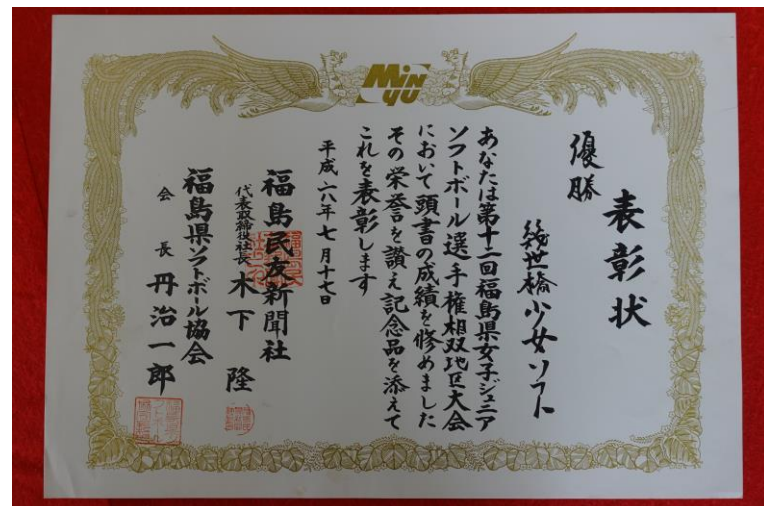 MiNYU
表彰状
優勝
幾世橋少女ソフト
あなたは第十二回福島県女子ジュニア
ソフトボール選手権相双地区大会
において頭書の成績を修めました
その栄誉を讃え記念品を添えて
これを表彰します
平成六八年七月十七日
福島民友新聞社
代表取締役社長 木下 隆
福島県ソフトボール協会
会長 丹治一郎